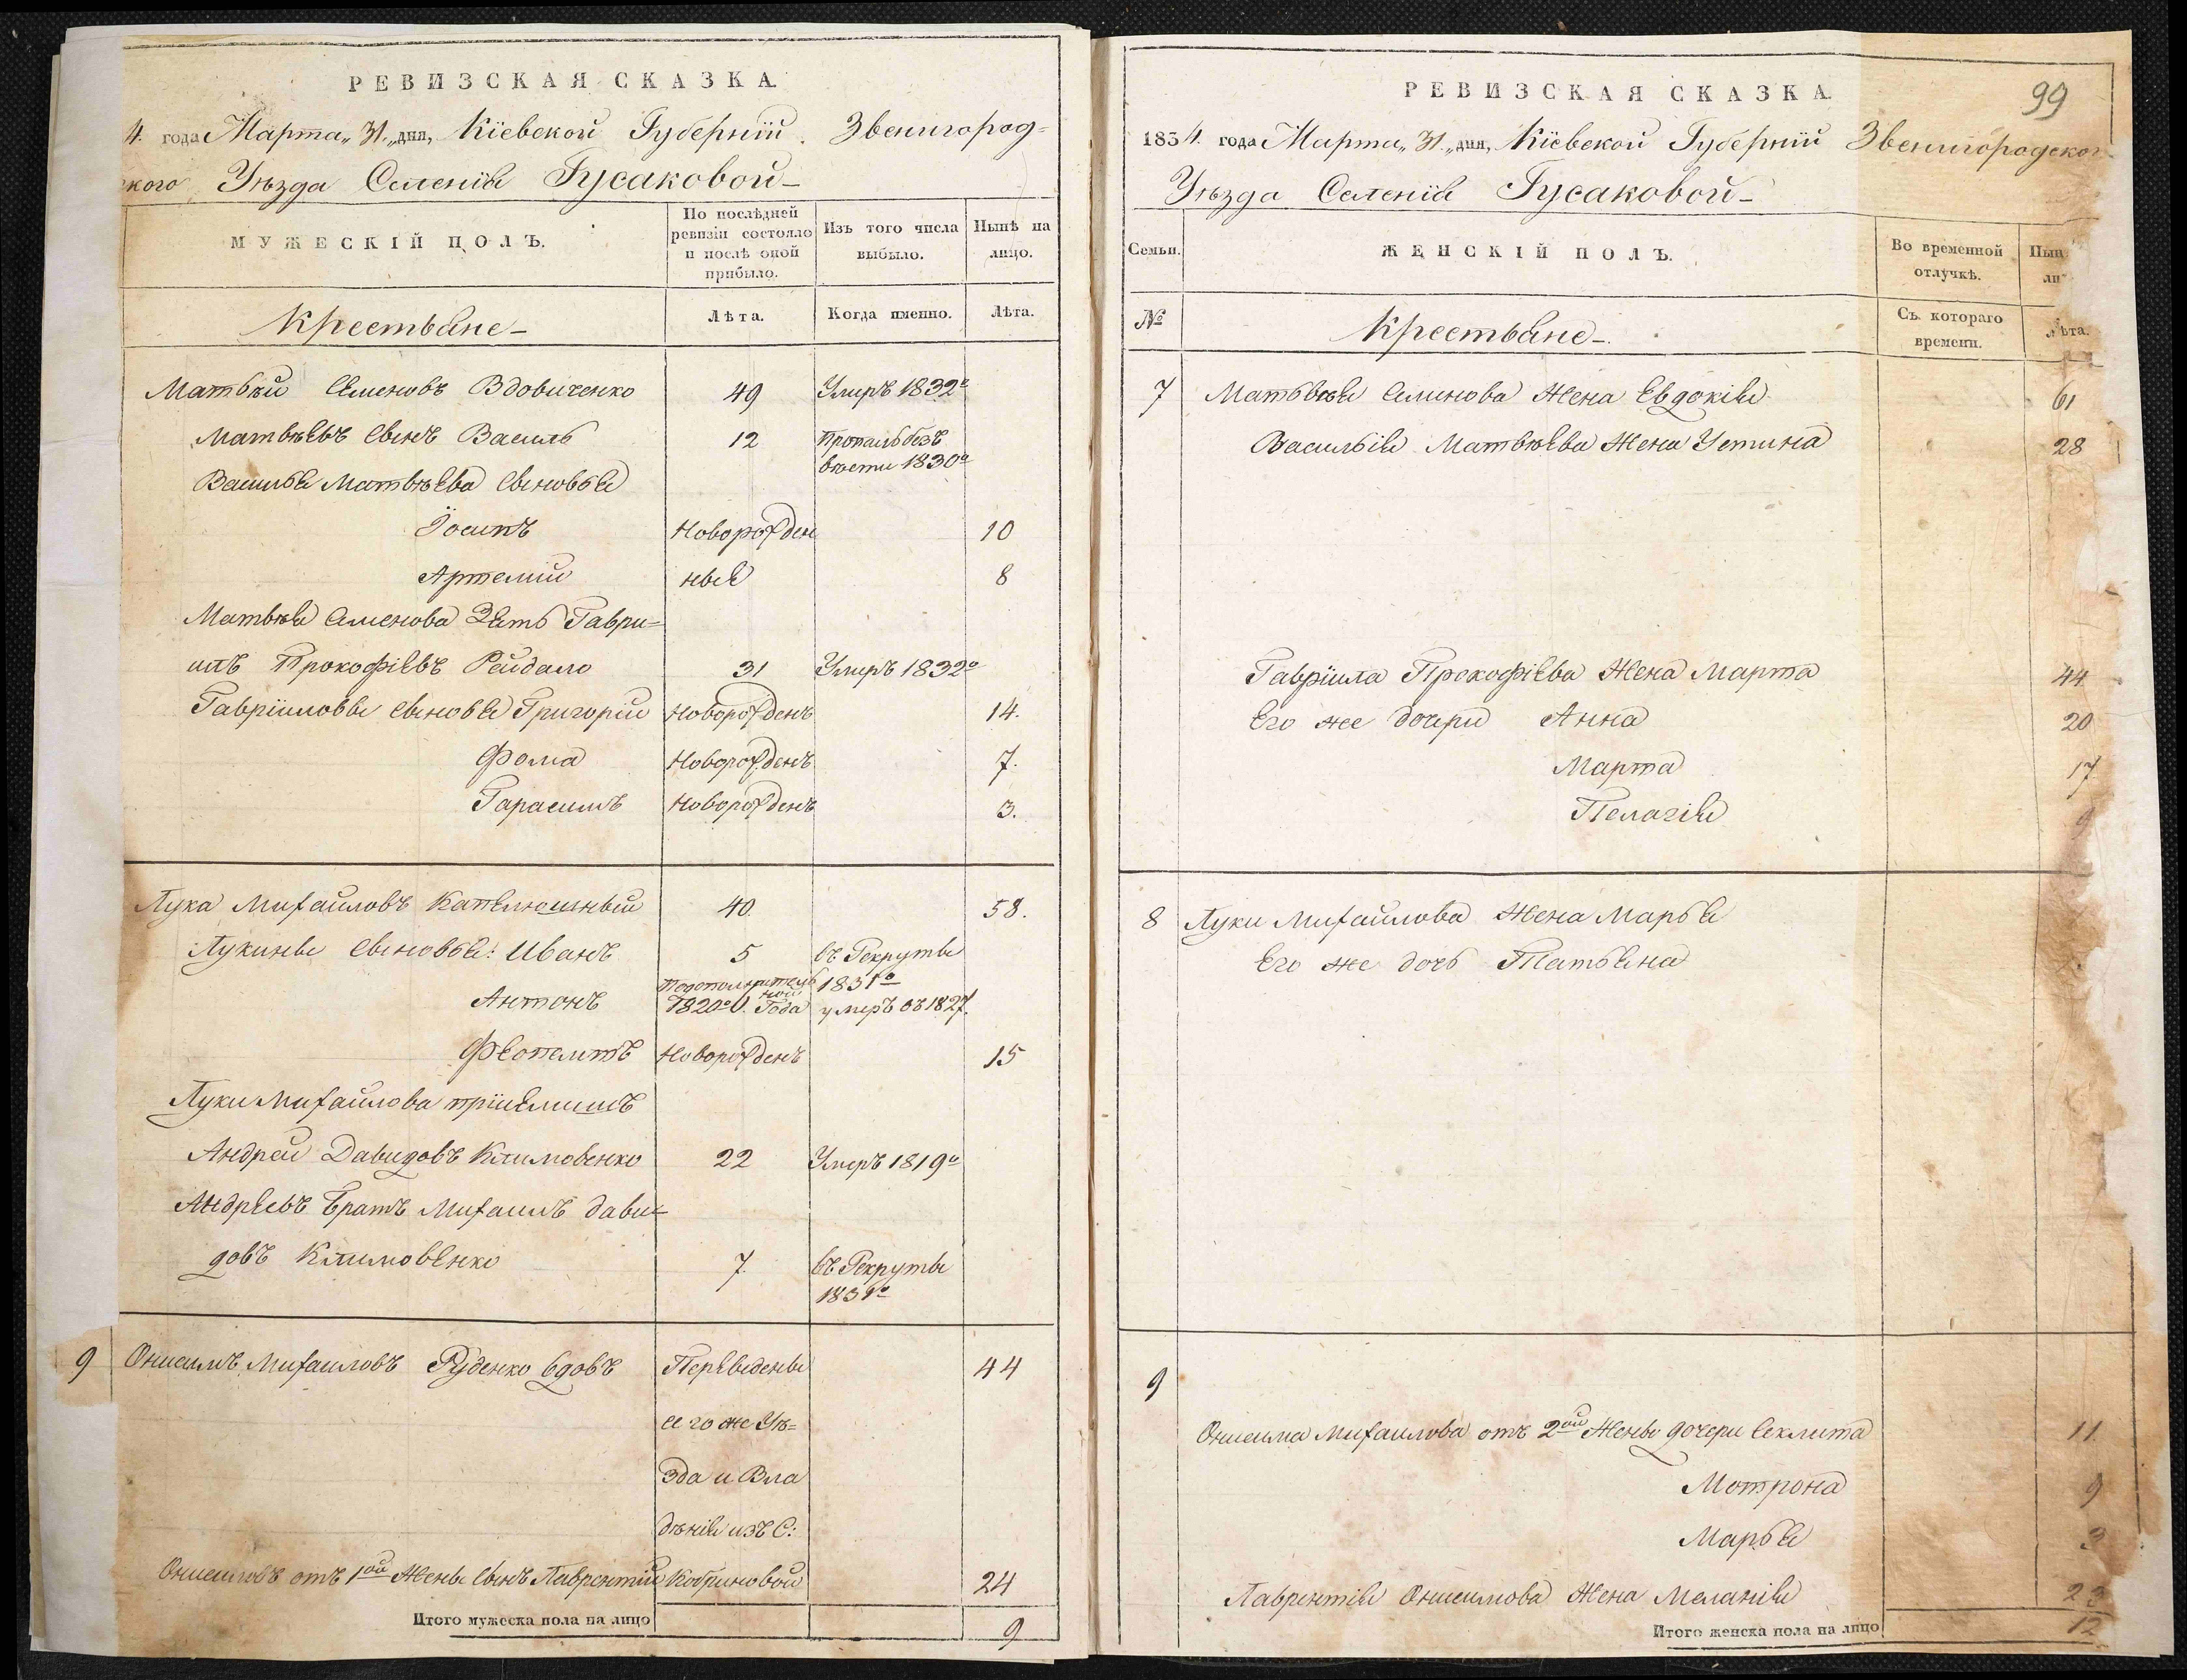 РЕВИЗСКАЯ СКАЗКА.
4. года Марта „31.„ дня, Кіевской Губерніи. Звенигород=
ского Уѣзда Селенія Гусаковой
МУЖЕСКІЙ ПОЛЪ.
По послѣдней ревизіи состояло и послѣ оной прибыло.
Изъ того числа выбыло.
Нынѣ на лицо.
Крестьяне
Лѣта.
Когда именно.
Лѣта.
Матвѣй Семеновъ Вдовиченко 49 Умеръ 1832о
Матвѣевъ сынъ Василь 12 Пропалъ безъ
вѣсти 1830о
Василья Матвѣева сыновья
Іосипъ Новорожден 10
Артемій ныя 8
Матвѣя Семенова Зять Гаври=
илъ Прокофіевъ Райдало 31 Умеръ 1832о
Гавріиловы сыновья Григорій Новорожденъ 14.
Фома Новорожденъ 7.
Гарасимъ Новорожденъ 3.
Лука Михайловъ 40. 58.
Лукины сыновья: Иванъ 5 въ Рекруты
1831о
Антонъ 1820о Года умеръ въ 1827.
Новорожденъ 15
Луки Михайлова пріемышъ
Андрей Давидовъ Климовенко 22 Умеръ 1819о
Андреевъ братъ Михаилъ Дави=
довъ Климовенко 7. въ Рекруты
1831о
9 Онисимъ Михаиловъ Руденко вдовъ Переведены 44
сего же Уѣ=
зда и Вла
дѣнія изъ С:
Онисимовъ отъ 1ой Жены сынъ Лаврентій Кобриновой 24
Итого мужеска пола на лицо 9
99
РЕВИЗСКАЯ СКАЗКА.
1834. года Марта „31.„ дня, Кіевской Губерніи Звенигородского
Уѣзда Селенія Гусаковой
Семьи.
ЖЕНСКІЙ ПОЛЪ.
Во временной отлучкѣ.
Нын
ли
№
Крестьяне
Съ котораго времени.
Лѣта.
7 Матвѣя Семенова Жена Евдокія 61
Василія Матвѣева Жена Устина 28
Гавріила Прокофіева Жена Марта 44
Его же дочери Анна 20
Марта 17
Пелагія 9
8 Луки Михайлова Жена Марья
Его же дочь Татьяна
9
Онисима Михаилова отъ 2ой Жены дочери Секлита 11
Мотрона 9
Марья 3
Лаврентія Онисимова Жена Меланія 23
Итого женска пола на лицо 12